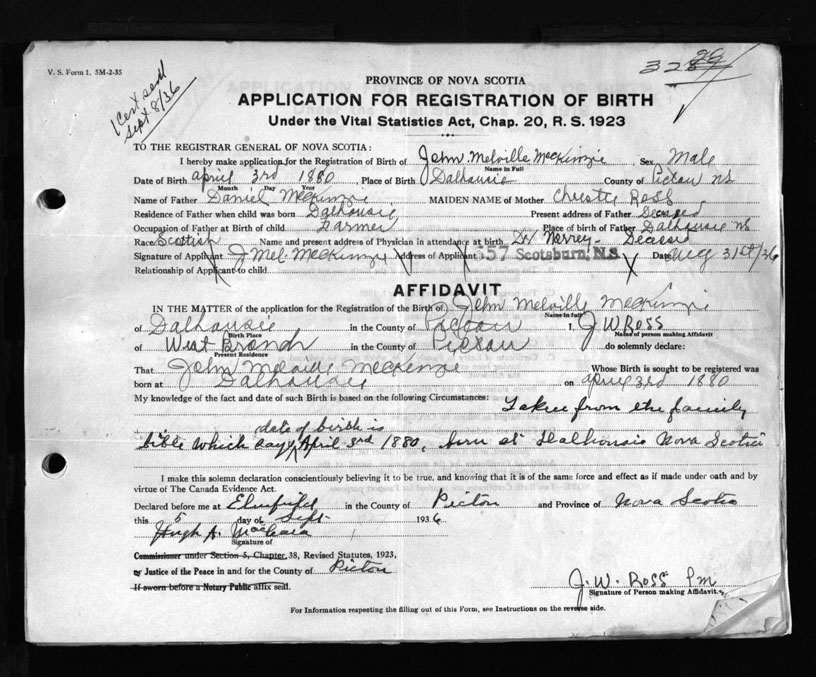 V. S. Form 1. 5M-2-35
1 Cert. send
Sept 8/36
328
PROVINCE OF NOVA SCOTIA
APPLICATION FOR REGISTRATION OF BIRTH
Under the Vital Statistics Act, Chap. 20, R. S. 1923
TO THE REGISTRAR GENERAL OF NOVA SCOTIA:
I hereby make application for the Registration of Birth of John Melville McKinzie Sex Male
Name in Full
Date of Birth April 3rd 1880, Place of Birth Dalhousie County of Pictou NS
Month Day Year
Name of Father Daniel McKinzie MAIDEN NAME of Mother Christy Ross
Residence of Father when child was born Dalhousie Present address of Father Decesed
Occupation of Father at Birth of child Farmer Place of birth of Father Dalhousie NS
Race Scottish Name and present address of Physician in attendance at birth Dr Decesed
Signature of Applicant J Mel. McKinzie Address of Applicant 557 Scotsburn, N.S. Date Aug 31st/36
Relationship of Applicant to child
AFFIDAVIT
IN THE MATTER of the application for the Registration of the Birth of John Melville McKinzie
Name in full
of Dalhousie in the County of Pictou I, J W Ross
Birth Place Name of person making Affidavit
of West Branch in the County of Pictou do solemnly declare:
Present Residence
That John Melville McKenzie Whose Birth is sought to be registered was
born at Dalhousie on April 3rd 1880
My knowledge of the fact and date of such Birth is based on the following Circumstances: Taken from the family
date of birth is
bible which says April 3rd 1880, born at Dalhousie Nova Scotia
I make this solemn declaration conscientiously believing it to be true, and knowing that it is of the same force and effect as if made under oath and by
virtue of The Canada Evidence Act.
Declared before me at Elmfield in the County of Picton and Province of Nova Scotia
this 5 day of Sept 1936
Hugh A.
Signature of
Commissioner under Section 5, Chapter 38, Revised Statutes, 1923,
or Justice of the Peace in and for the County of Picton
If sworn before a Notary Public affix seal.
J. W. Ross P m
Signature of Person making Affidavit.
For Information respecting the filling out of this Form, see Instructions on the reverse side.